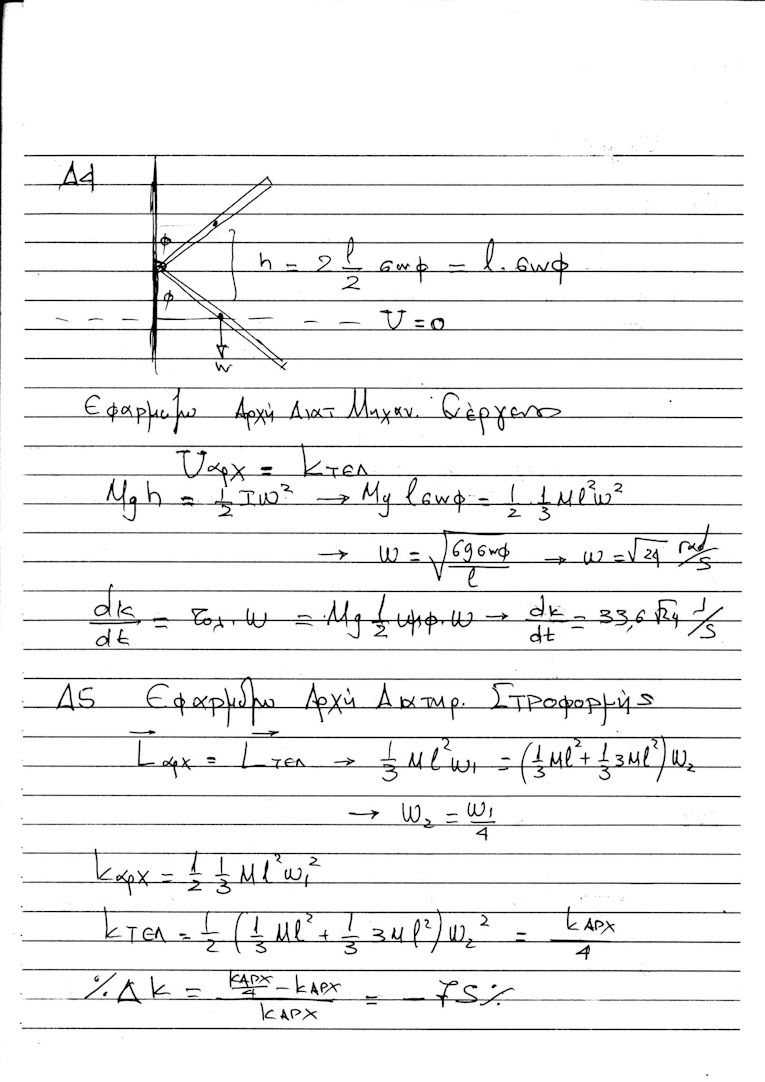 Δ4
φ
h = 2 l/2 συνφ = l·συνφ
φ
U = 0
w
Εφαρμόζω Αρχή Διατ Μηχαν. Ενέργειας
Uαρχ = kτελ
Mgh = 1/2 Iω² → Mg lσυνφ = 1/2 1/3 Ml²ω²
→ ω = √(6gσυνφ/l) → ω = √24 rad/s
dk/dt = τολ·ω = Mg l/2 ημφ·ω → dk/dt = 33,6√24 J/s
Δ5 Εφαρμόζω Αρχή Διατηρ. Στροφορμής
L⃗αρχ = L⃗τελ → 1/3 Ml²ω₁ = (1/3 Ml² + 1/3 3Ml²)ω₂
→ ω₂ = ω₁/4
kαρχ = 1/2 1/3 Ml²ω₁²
kτελ = 1/2 (1/3 Ml² + 1/3 3Ml²)ω₂² = kαρχ/4
%Δk = (kαρχ/4 - kαρχ)/kαρχ = -75%